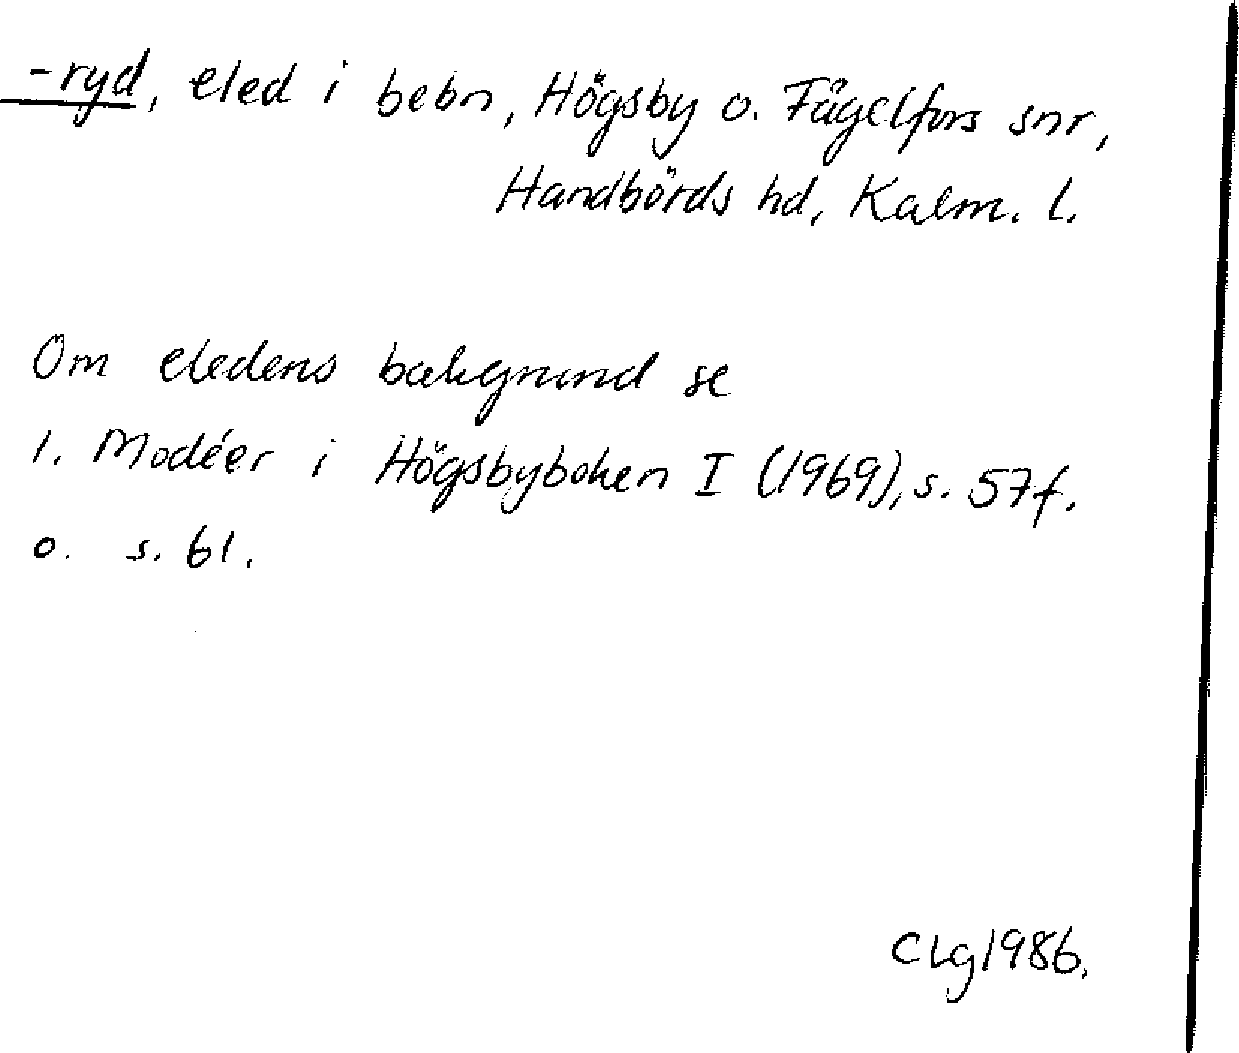 -ryd, eled i bebn, Högsby o. Fågelfors snr,
Handbörds hd, Kalm. l.
Om eledens bakgrund se
I. Modéer i Högsbyboken I (1969), s. 57f.
o. s. 61.
CLg 1986.